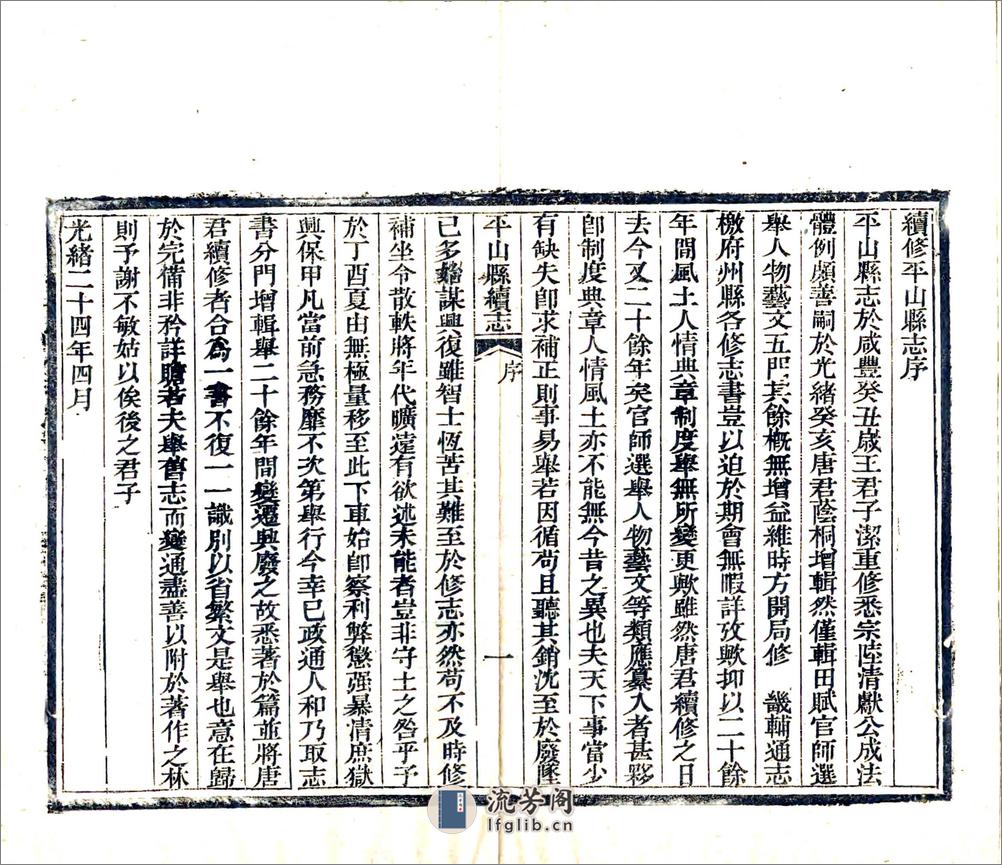 續修平山縣志序
平山縣志於咸豐癸丑歲王君子潔重修悉宗陸清獻公成法
體例頗善嗣於光緒癸亥唐君蔭桐增輯然僅輯田賦官師選
舉人物藝文五門其餘槪無增益維時方開局修　畿輔通志
檄府州縣各修志書豈以迫於期會無暇詳攷歟抑以二十餘
年間風土人情典章制度舉無所變更歟雖然唐君續修之日
去今又二十餘年矣官師選舉人物藝文等類應纂入者甚夥
卽制度典章人情風土亦不能無今昔之異也夫天下事當少
有缺失卽求補正則事易舉若因循苟且聽其銷沈至於廢墜
平山縣續志　序　一
已多始謀興復雖智士恆苦其難至於修志亦然苟不及時修
補坐令散軼將年代曠遠有欲述未能者豈非守土之咎乎予
於丁酉夏由無極量移至此下車始卽察利弊懲强暴清庶獄
興保甲凡當前急務靡不次第舉行今幸已政通人和乃取志
書分門增輯舉二十餘年間變遷興廢之故悉著於篇並將唐
君續修者合為一書不復一一識別以省繁文是舉也意在歸
於完備非矜詳贍若夫舉舊志而變通盡善以附於著作之林
則予謝不敏姑以俟後之君子
光緒二十四年四月
流芳阁
lfglib.cn